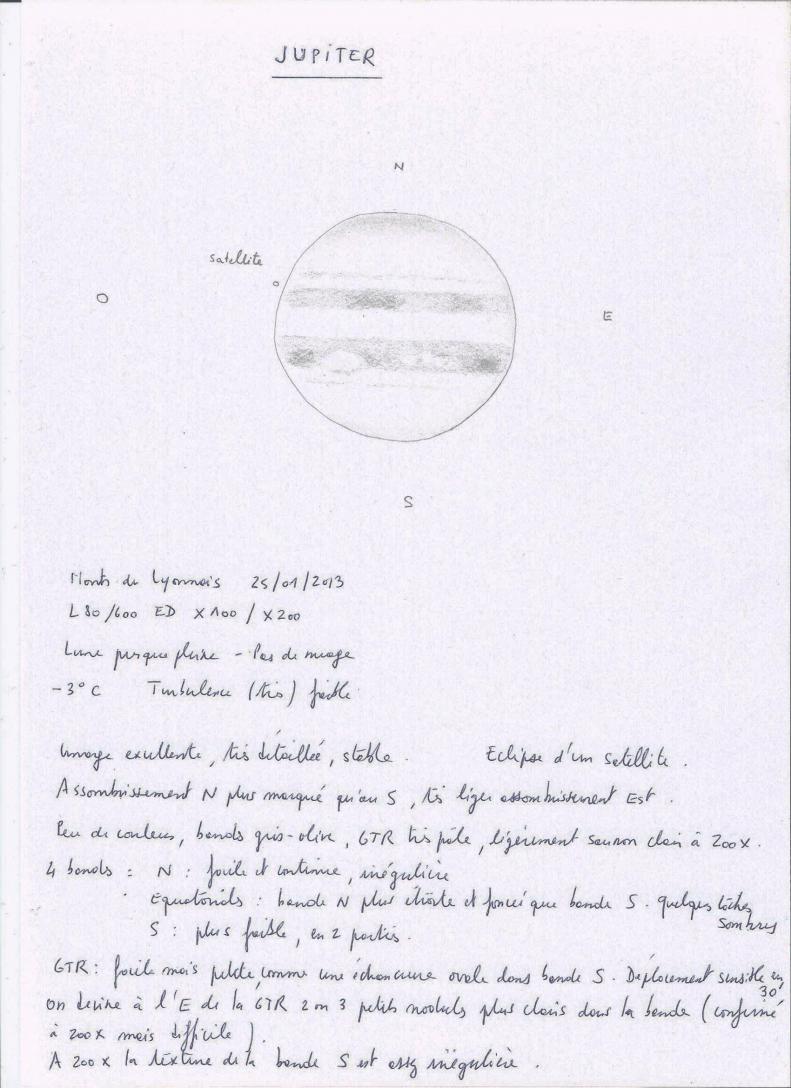 JUPITER
N
satellite
O
E
S
Monts du Lyonnais 25/01/2013
L 80/600 ED X100 / X200
Lune presque pleine - Pas de nuage
-3°C Turbulence (très) faible
Image excellente, très détaillée, stable. Eclipse d'un satellite.
Assombrissement N plus marqué qu'au S, très léger assombrissement Est.
Peu de couleurs, bandes gris-olive, GTR très pâle, légèrement saumon clair à 200x.
4 bandes : N : facile et continue, irrégulière
Equatoriales : bande N plus étroite et foncée que bande S. quelques tâches
sombres
S : plus faible, en 2 parties.
GTR : facile mais petite, comme une échancrure ovale dans bande S. Déplacement sensible en
30'
On devine à l'E de la GTR 2 ou 3 petits nodules plus clairs dans la bande (confirmé
à 200x mais difficile).
A 200x la texture de la bande S est assez irrégulière.